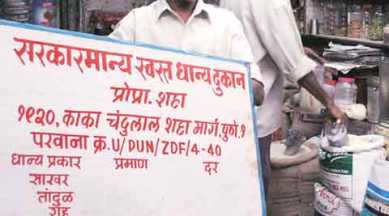 सरकारमान्य स्वस्त धान्य दुकान
प्रोप्रा. शहा
१९२०, काका चंदुलाल शहा मार्ग, पुणे. १
परवाना क्र. U/PUN/ZDF/4-40
धान्य प्रकार प्रमाण दर
साखर
तांदुळ
गहू